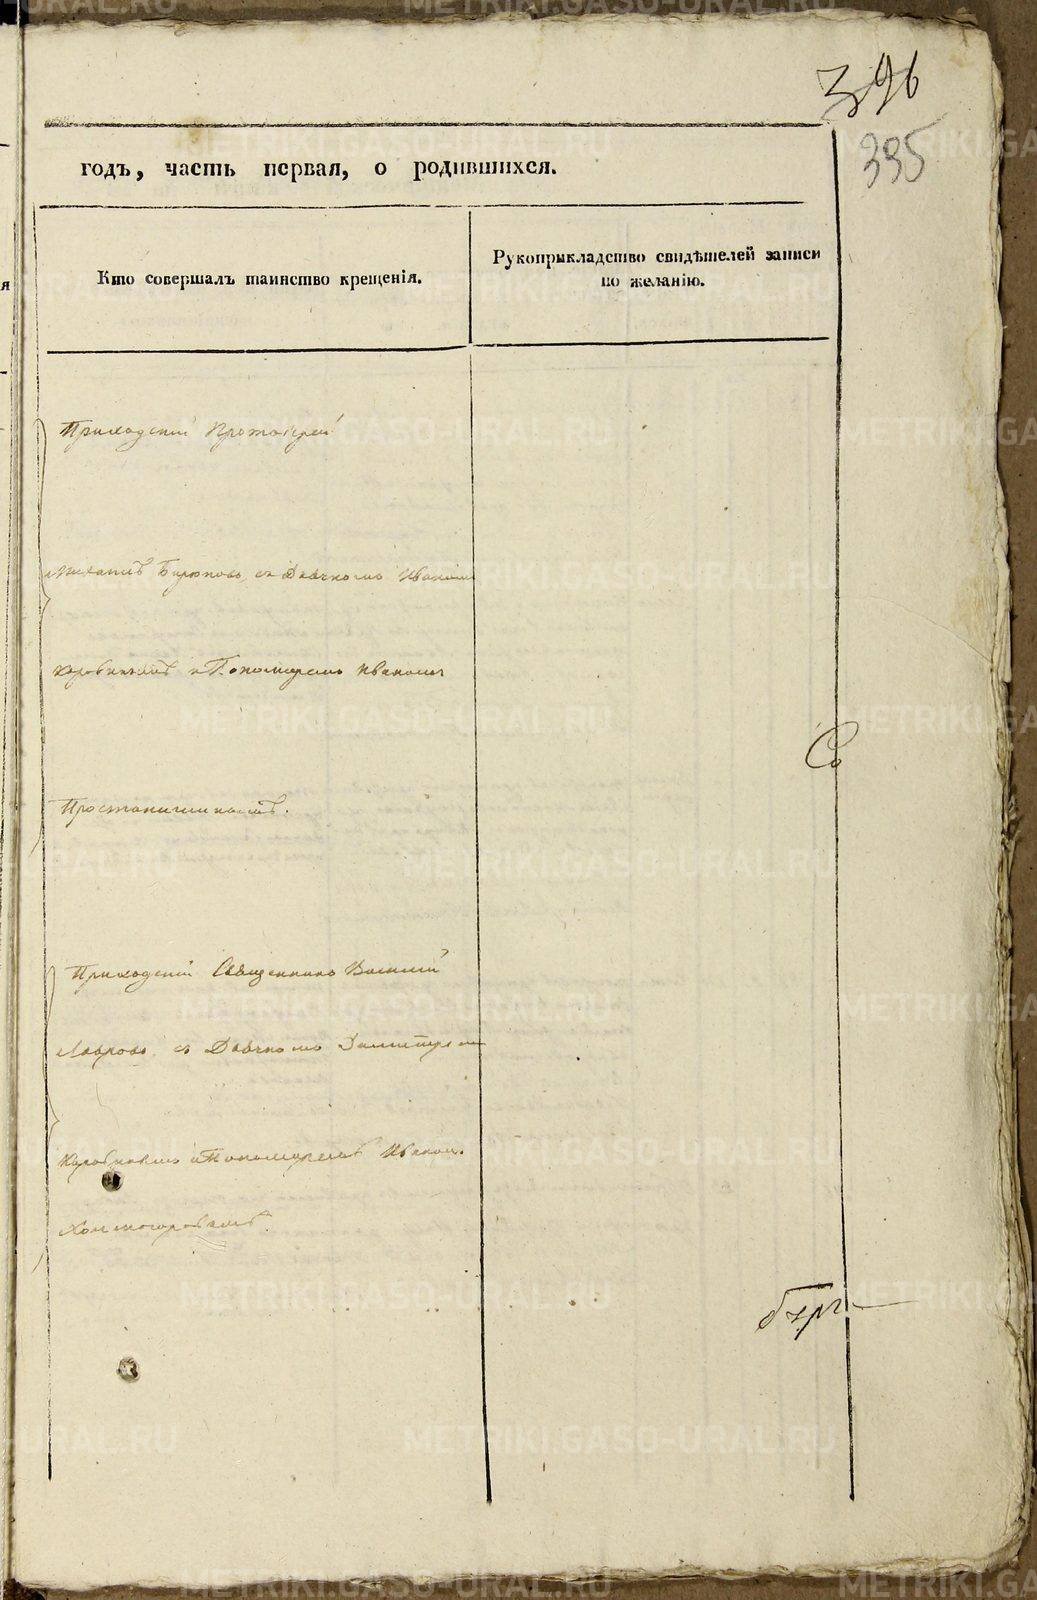 396
395
годъ, часть первая, о родившихся.
Кто совершалъ таинство крещенія.
Рукоприкладство свидѣтелей записи
по желанію.
Приходскій Протоіерей
Михаилъ Бирюковъ съ Дьячкомъ Иваномъ
и Пономаремъ Иваномъ
Приходскій Священникъ Василій
Лавровъ съ Дьячкомъ Димитріемъ
и Пономаремъ Иваном.
Холмогоровымъ.
Со
METRIKI.GASO-URAL.RU